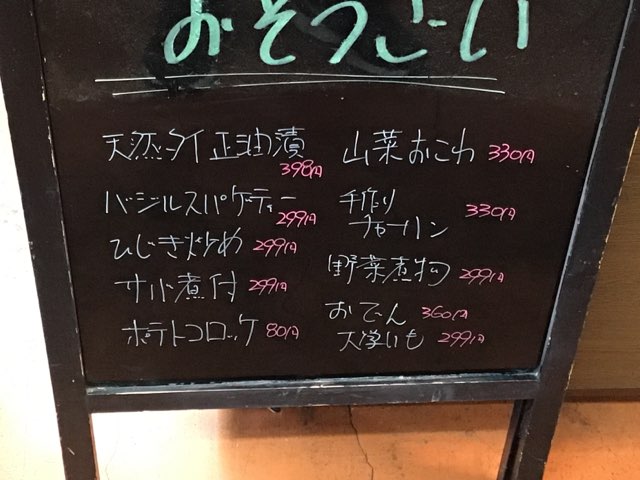 おそうざい
天然タイ正油漬
398円
バジルスパゲティー
299円
ひじき炒め 299円
サバ煮付 299円
ポテトコロッケ 80円
山菜おこわ 330円
手作り
チャーハン 330円
野菜煮物 299円
おでん 360円
大学いも 299円